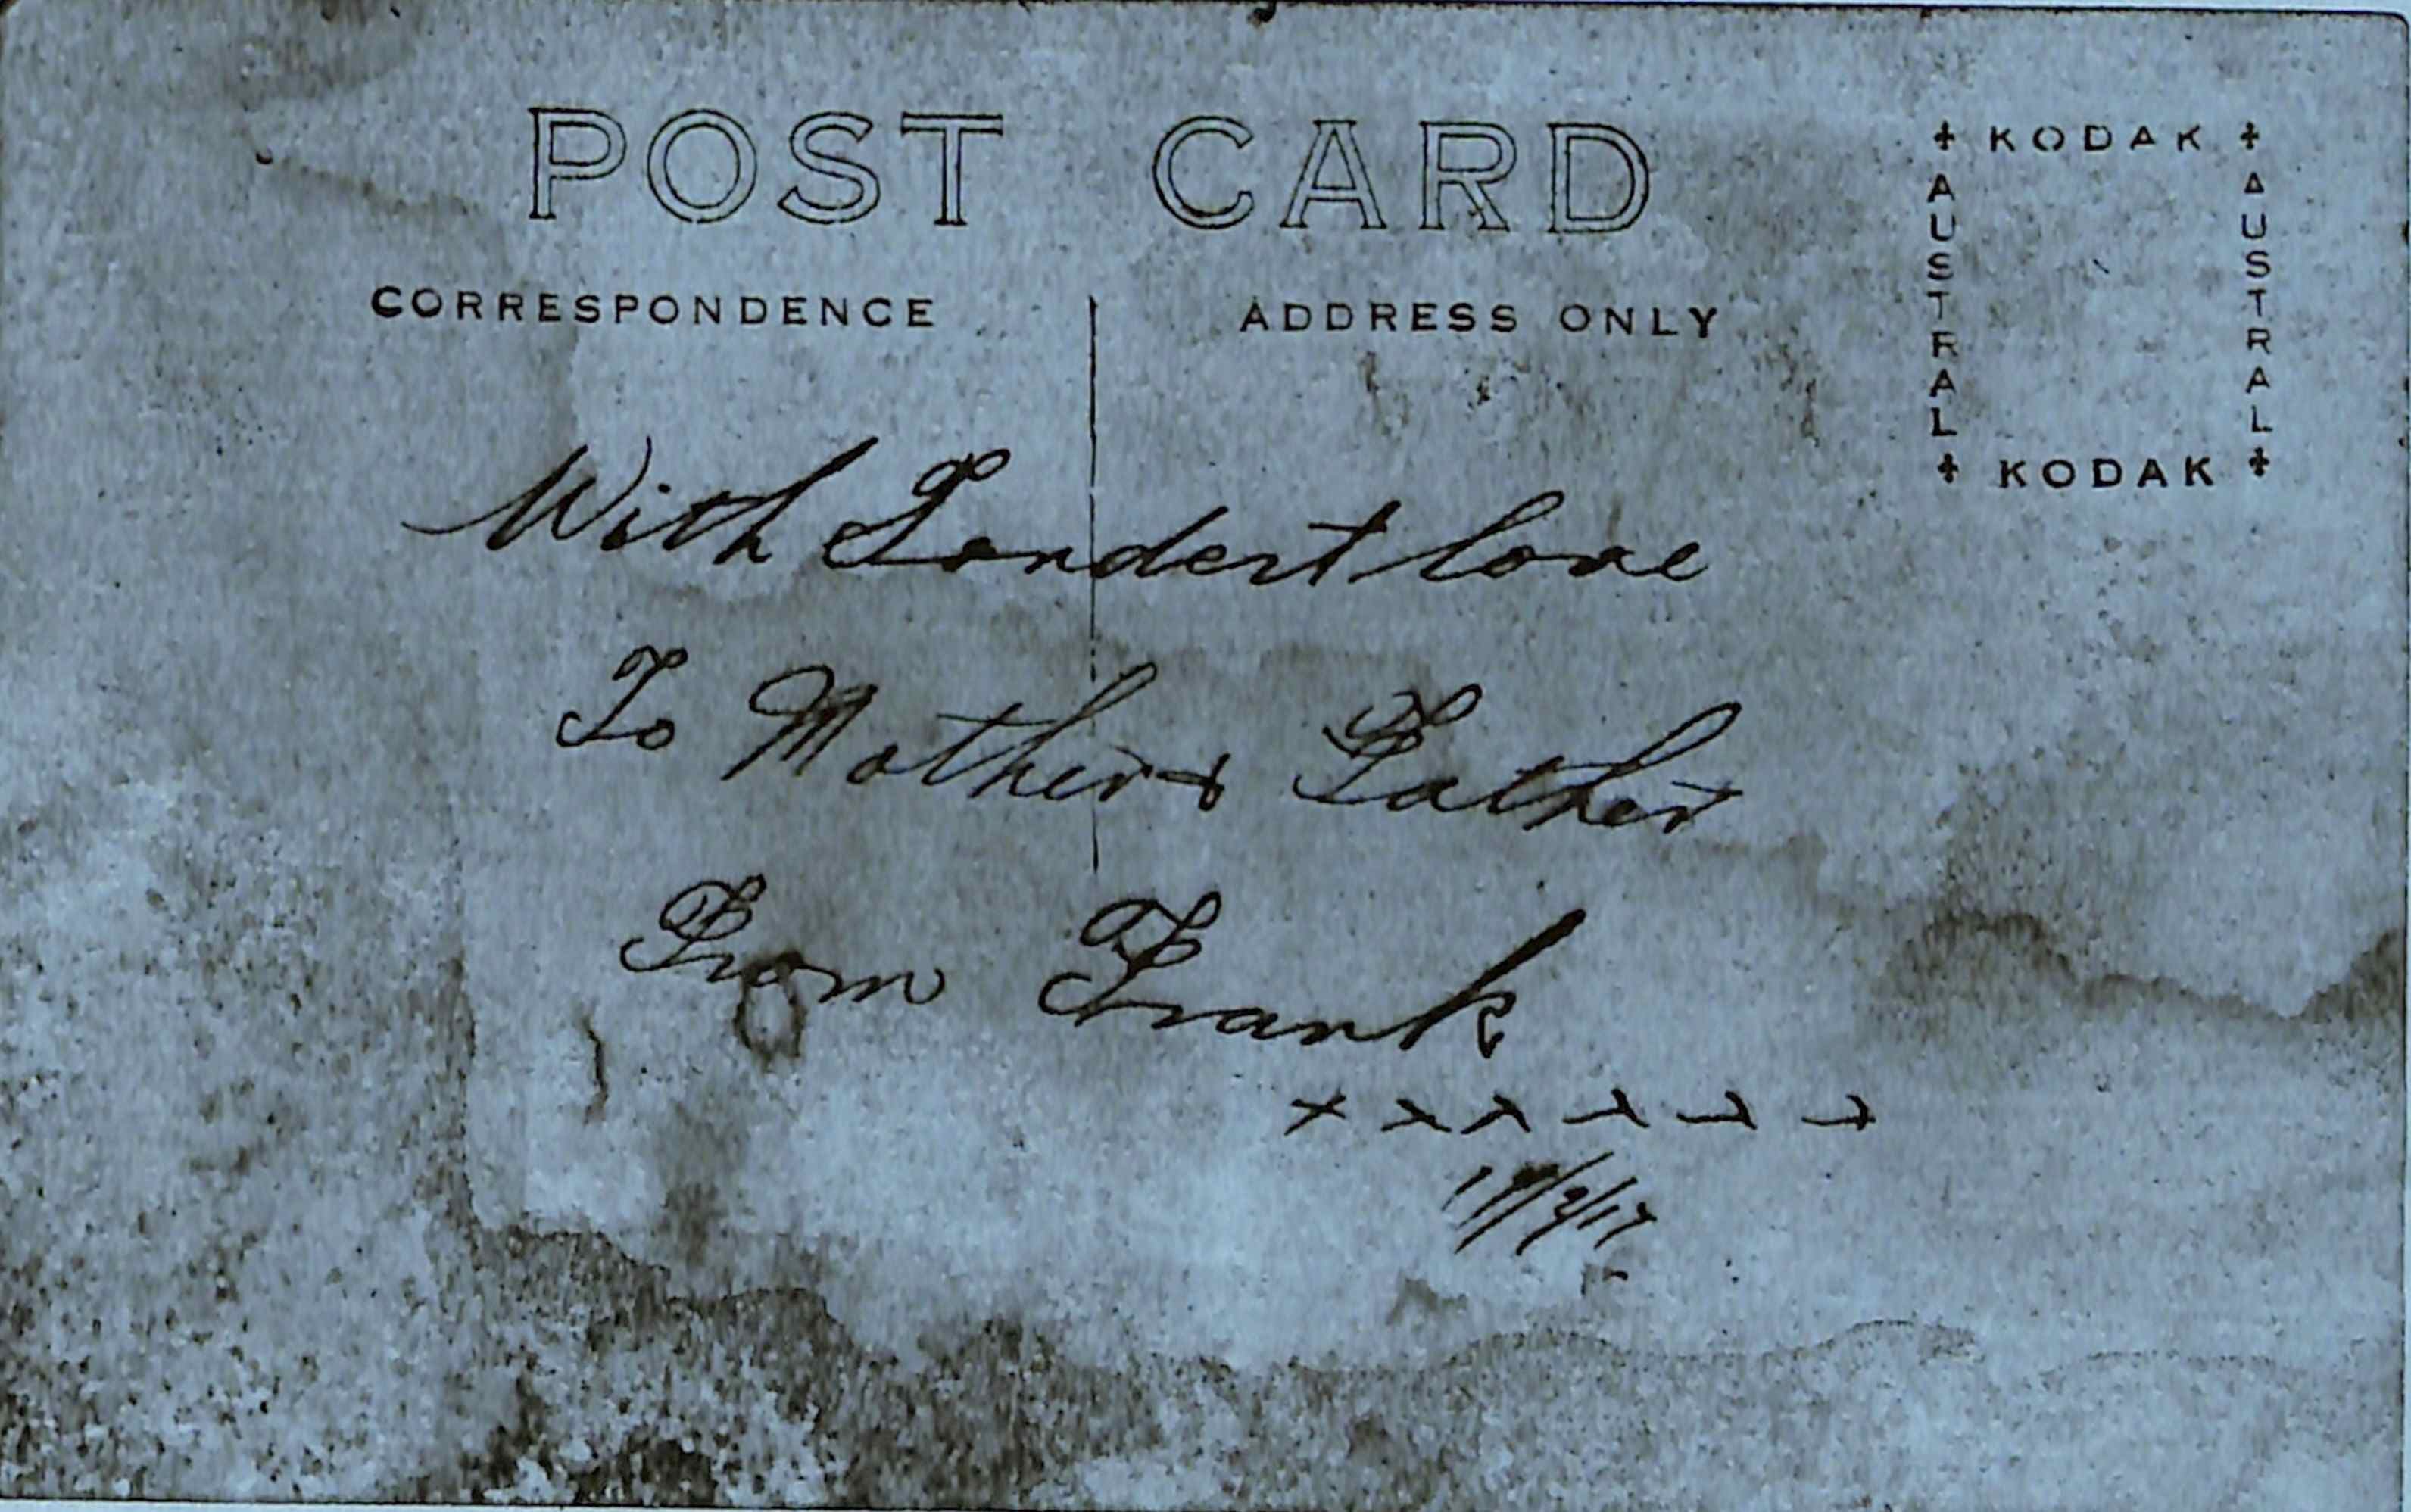 POST CARD
CORRESPONDENCE
ADDRESS ONLY
KODAK
AUSTRAL
AUSTRAL
KODAK
With Fondest love
To Mother & Father
From Frank
x x x x x x